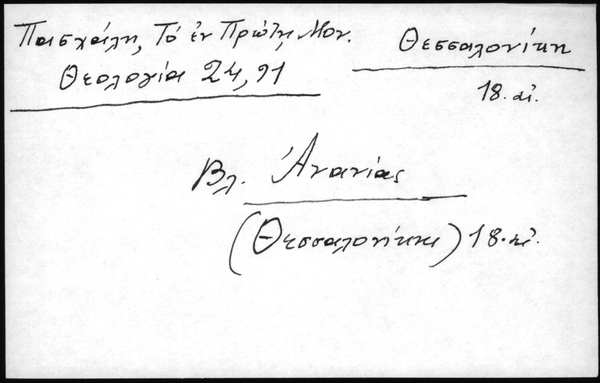 Πασχάλη, Τό ἐν Πρώτῃ Μον.
Θεολογία 24, 91
Θεσσαλονίκη
18. αἰ.
Βλ. Ἀνανίας
(Θεσσαλονίκη) 18. αἰ.